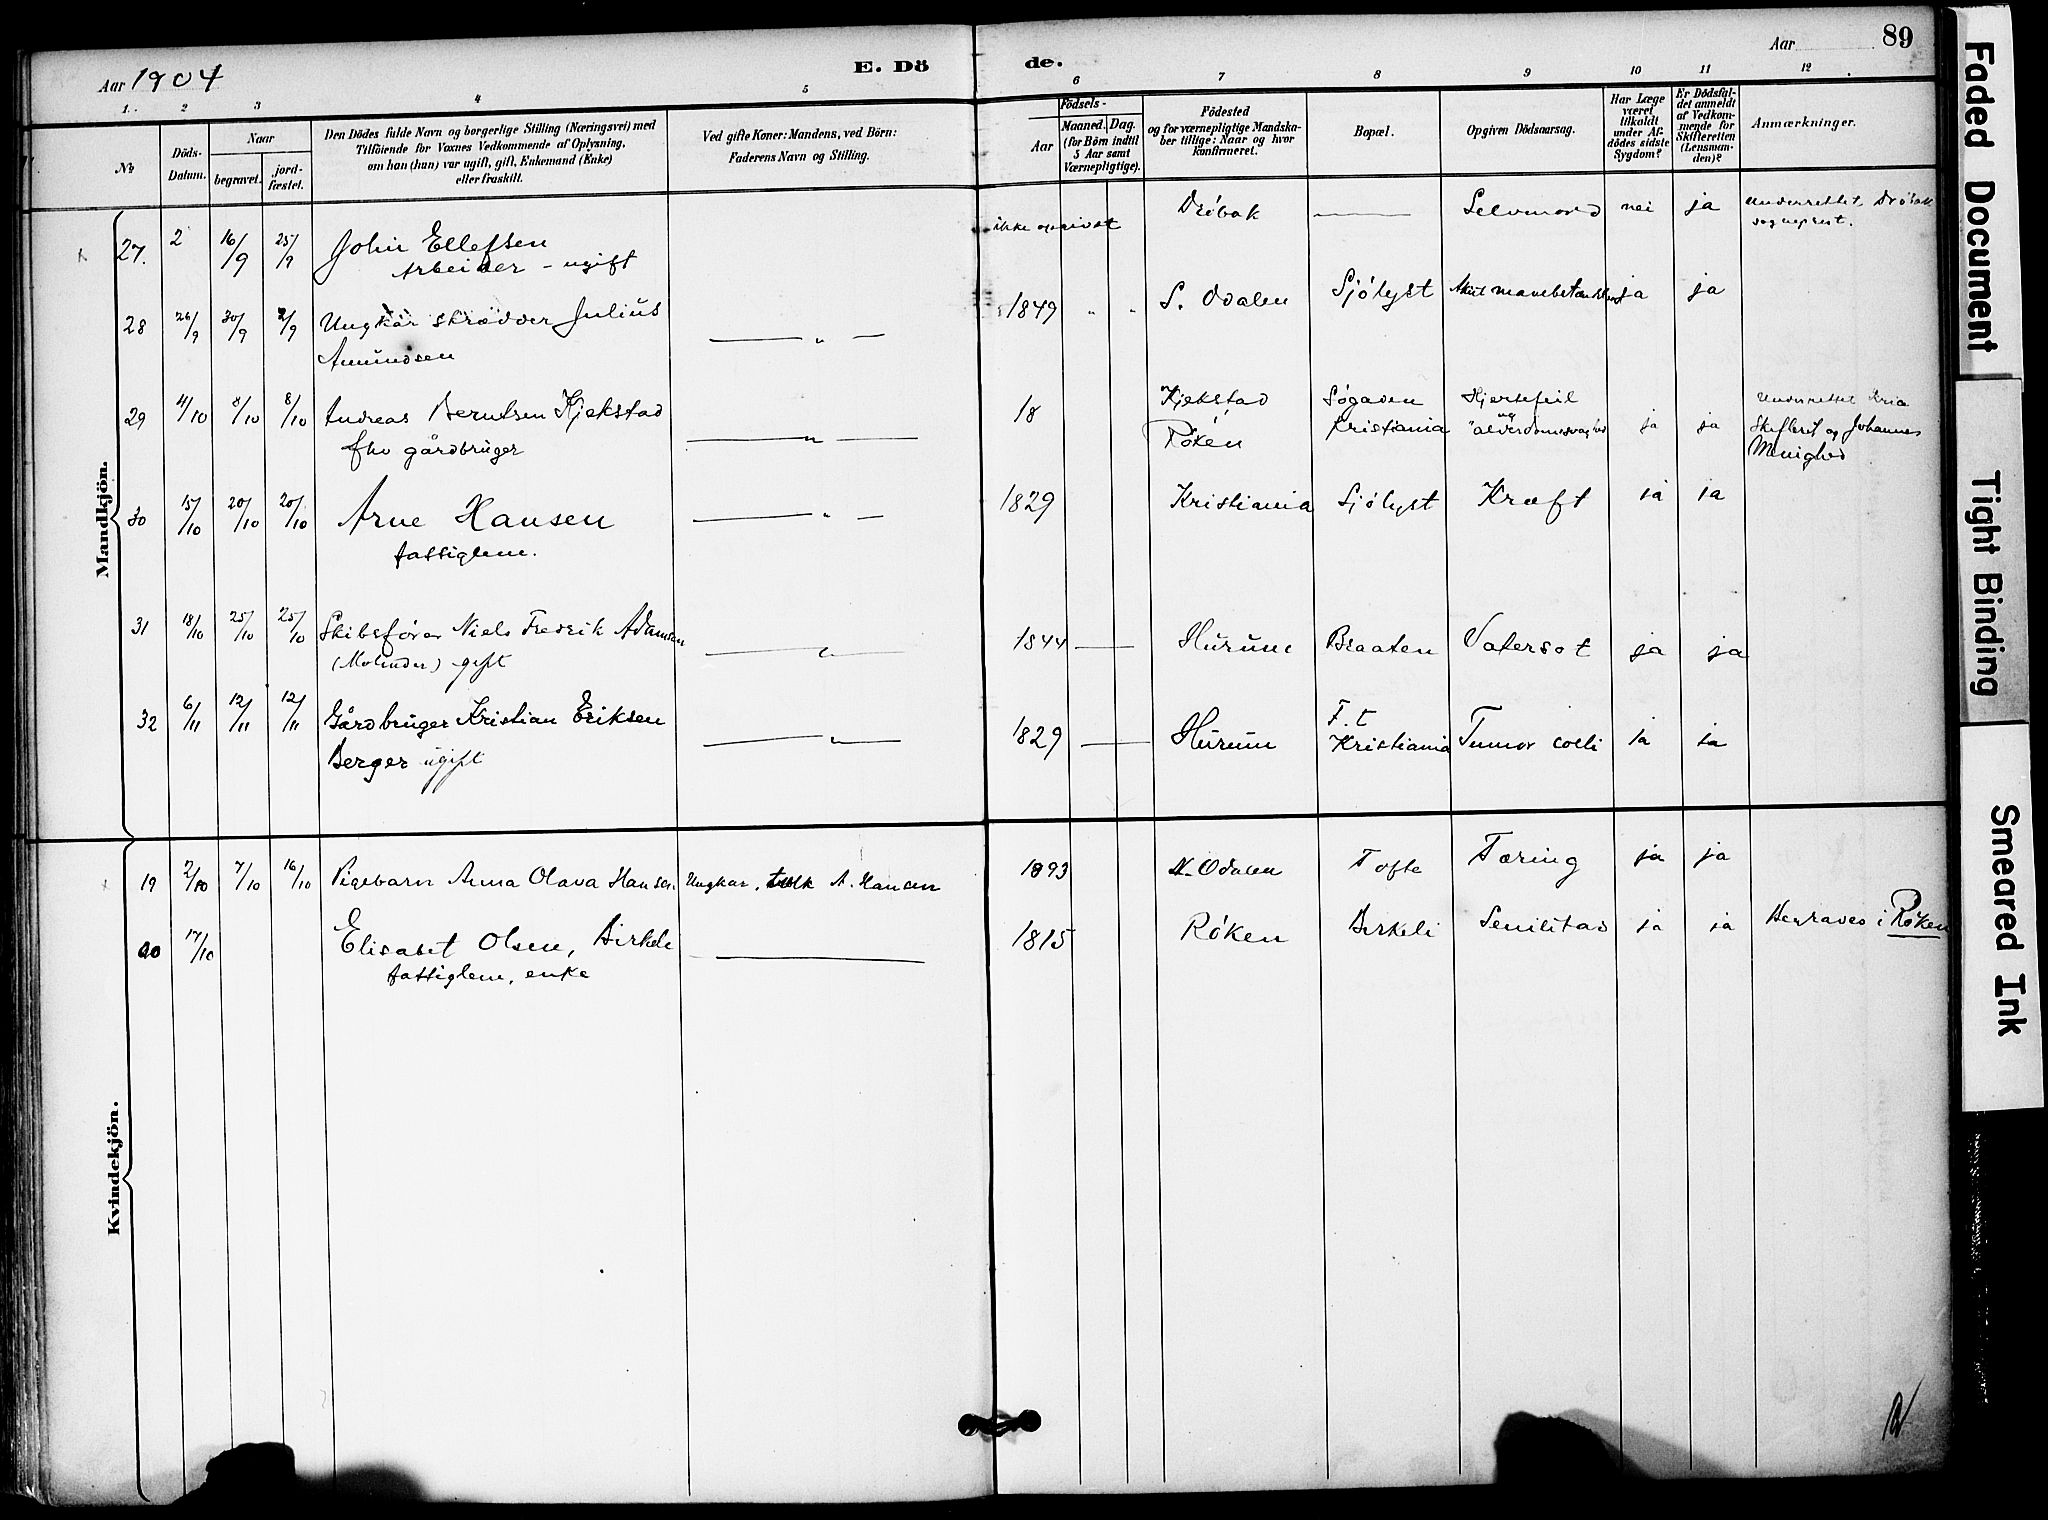 Aar 1904
E. Dö
de.
Aar
89
1. 2 3 4 5 6 7 8 9 10 11 12
No
Döds-
Datum.
Naar
begravet.
jord-
fæstet.
Den Dödes fulde Navn og borgerlige Stilling (Næringsvei) med
Tilföiende for Voxnes Vedkommende af Oplysning,
om han (hun) var ugift, gift, Enkemand (Enke)
eller fraskilt.
Ved gifte Koner: Mandens, ved Börn:
Faderens Navn og Stilling.
Födsels-
Aar
Maaned. Dag.
(for Börn indtil
5 Aar samt
Værnepligtige).
Födested
og for værnepligtige Mandska-
ber tillige: Naar og hvor
konfirmeret.
Bopæl.
Opgiven Dödsaarsag.
Har Læge
været
tilkaldt
under Af-
dödes sidste
Sygdom?
Er Dödsfal-
det anmeldt
af Vedkom-
mende for
Skifteretten
(Lensman-
den)?
Anmærkninger.
Mandkjön.
27. 2 16/9 25/9 John Ellefsen ikke opgivet Dröbak — Selvmord nei ja Underrettet Dröbak
Arbeider - ugift sogneprest.
28 26/9 30/9 2/9 Ungkar skrædder Julius — " — 1849 " " S. Odalen Sjölyst ja ja
Amundsen
29 4/10 8/10 8/10 Andreas Berntsen Kjekstad — " — 18 Kjekstad Søgaden Hjertefeil ja ja Underrettet Kria
fhv gårdbruger Røken Kristiania og alderdomssvaghed Skifteret og Johannes
Menighed
30 15/10 20/10 20/10 Arne Hansen — " — 1829 Kristiania Sjölyst Kræft ja ja
fattiglem.
31 18/10 25/10 25/10 Skibsfører Niels Fredrik Adamsen — " — 1844 — Hurum Braaten Vatersot ja ja
gift
32 6/11 12/11 12/11 Gårdbruger Kristian Eriksen — " — 1829 — Hurum F. t. Kristiania Tumor colli ja ja
Berger ugift
Kvindekjön.
19 2/10 7/10 16/10 Pigebarn Anna Olava Hansen Ungkar, A. Hansen 1893 N. Odalen Tofte Tæring ja ja
20 17/10 Elisabet Olsen, Birkeli — 1815 Røken Birkeli Senilitas ja ja Begraves i Røken
fattiglem, enke
Faded Document
Tight Binding
Smeared Ink